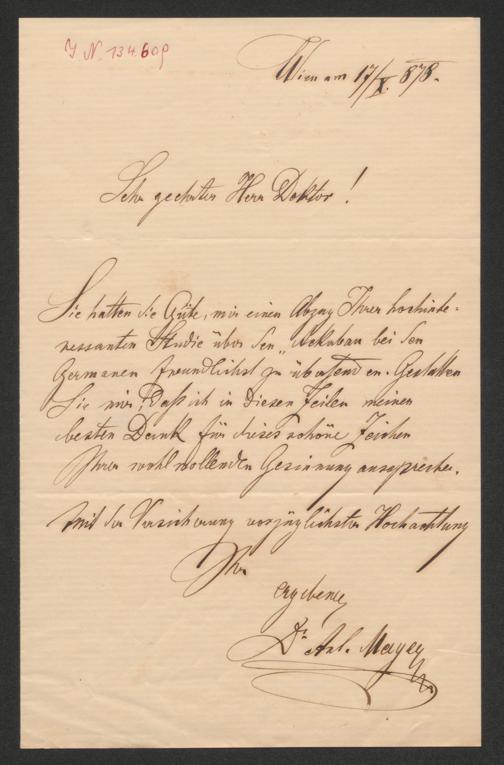 J. N. 134.609
Wien am 17/X. 878.
Sehr geehrter Herr Doktor!
Sie hatten die Güte, mir einen Abzug Ihrer hochinte-
ressanten Studie über den „Ackerbau bei den
Germanen freundlichst zu übersenden. Gestatten
Sie mir, daß ich in diesen Zeilen meinen
besten Dank für dieses schöne Zeichen
Ihrer wohlwollenden Gesinnung ausspreche.
Mit der Versicherung vorzüglichster Hochachtung
Ihr
ergebener
Dr. Ant. Mayer